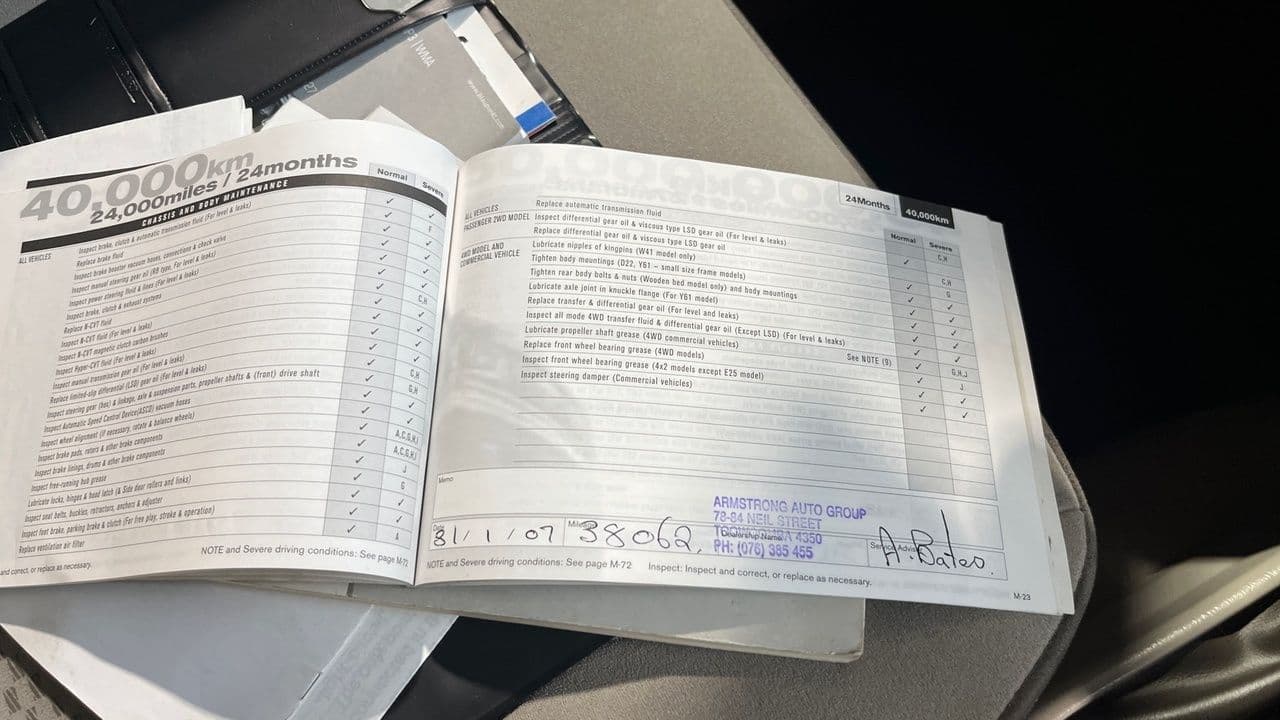 WMA
40,000km
24,000miles / 24months
CHASSIS AND BODY MAINTENANCE
Normal
Severe
ALL VEHICLES
Inspect brake, clutch & automatic transmission fluid (For level & leaks)
Replace brake fluid
F
Inspect brake booster vacuum hoses, connections & check valve
Inspect manual steering gear oil (RB type, For level & leaks)
Inspect power steering fluid & lines (For level & leaks)
Inspect brake, clutch & exhaust systems
Replace N-CVT fluid
C,H
Inspect N-CVT fluid (For level & leaks)
Inspect N-CVT magnetic clutch carbon brushes
Inspect Hyper-CVT fluid (For level & leaks)
Inspect manual transmission gear oil (For level & leaks)
Replace limited-slip differential (LSD) gear oil (For level & leaks)
C,H
Inspect steering gear (box) & linkage, axle & suspension parts, propeller shafts & (front) drive shaft
G,H
Inspect Automatic Speed Control Device(ASCD) vacuum hoses
Inspect wheel alignment (If necessary, rotate & balance wheels)
Inspect brake pads, rotors & other brake components
A,C,G,H,I
Inspect brake linings, drums & other brake components
A,C,G,H,I
Inspect free-running hub grease
J
Lubricate locks, hinges & hood latch (& Side door rollers and links)
G
Inspect seat belts, buckles, retractors, anchors & adjuster
Inspect foot brake, parking brake & clutch (For free play, stroke & operation)
Replace ventilation air filter
A
NOTE and Severe driving conditions: See page M-72
and correct, or replace as necessary.
24Months
40,000km
Normal
Severe
ALL VEHICLES
Replace automatic transmission fluid
C,H
PASSENGER 2WD MODEL
Inspect differential gear oil & viscous type LSD gear oil (For level & leaks)
Replace differential gear oil & viscous type LSD gear oil
C,H
4WD MODEL AND
COMMERCIAL VEHICLE
Lubricate nipples of kingpins (W41 model only)
G
Tighten body mountings (D22, Y61 – small size frame models)
Tighten rear body bolts & nuts (Wooden bed model only) and body mountings
Lubricate axle joint in knuckle flange (For Y61 model)
Replace transfer & differential gear oil (For level and leaks)
Inspect all mode 4WD transfer fluid & differential gear oil (Except LSD) (For level & leaks)
Lubricate propeller shaft grease (4WD commercial vehicles)
G,H,J
Replace front wheel bearing grease (4WD models)
See NOTE (9)
J
Inspect front wheel bearing grease (4x2 models except E25 model)
Inspect steering damper (Commercial vehicles)
Memo
Date
31/1/07
38062
ARMSTRONG AUTO GROUP
78-84 NEIL STREET
TOOWOOMBA 4350
Dealership Name
PH: (076) 385 455
A. Bates.
NOTE and Severe driving conditions: See page M-72
Inspect: Inspect and correct, or replace as necessary.
M-23